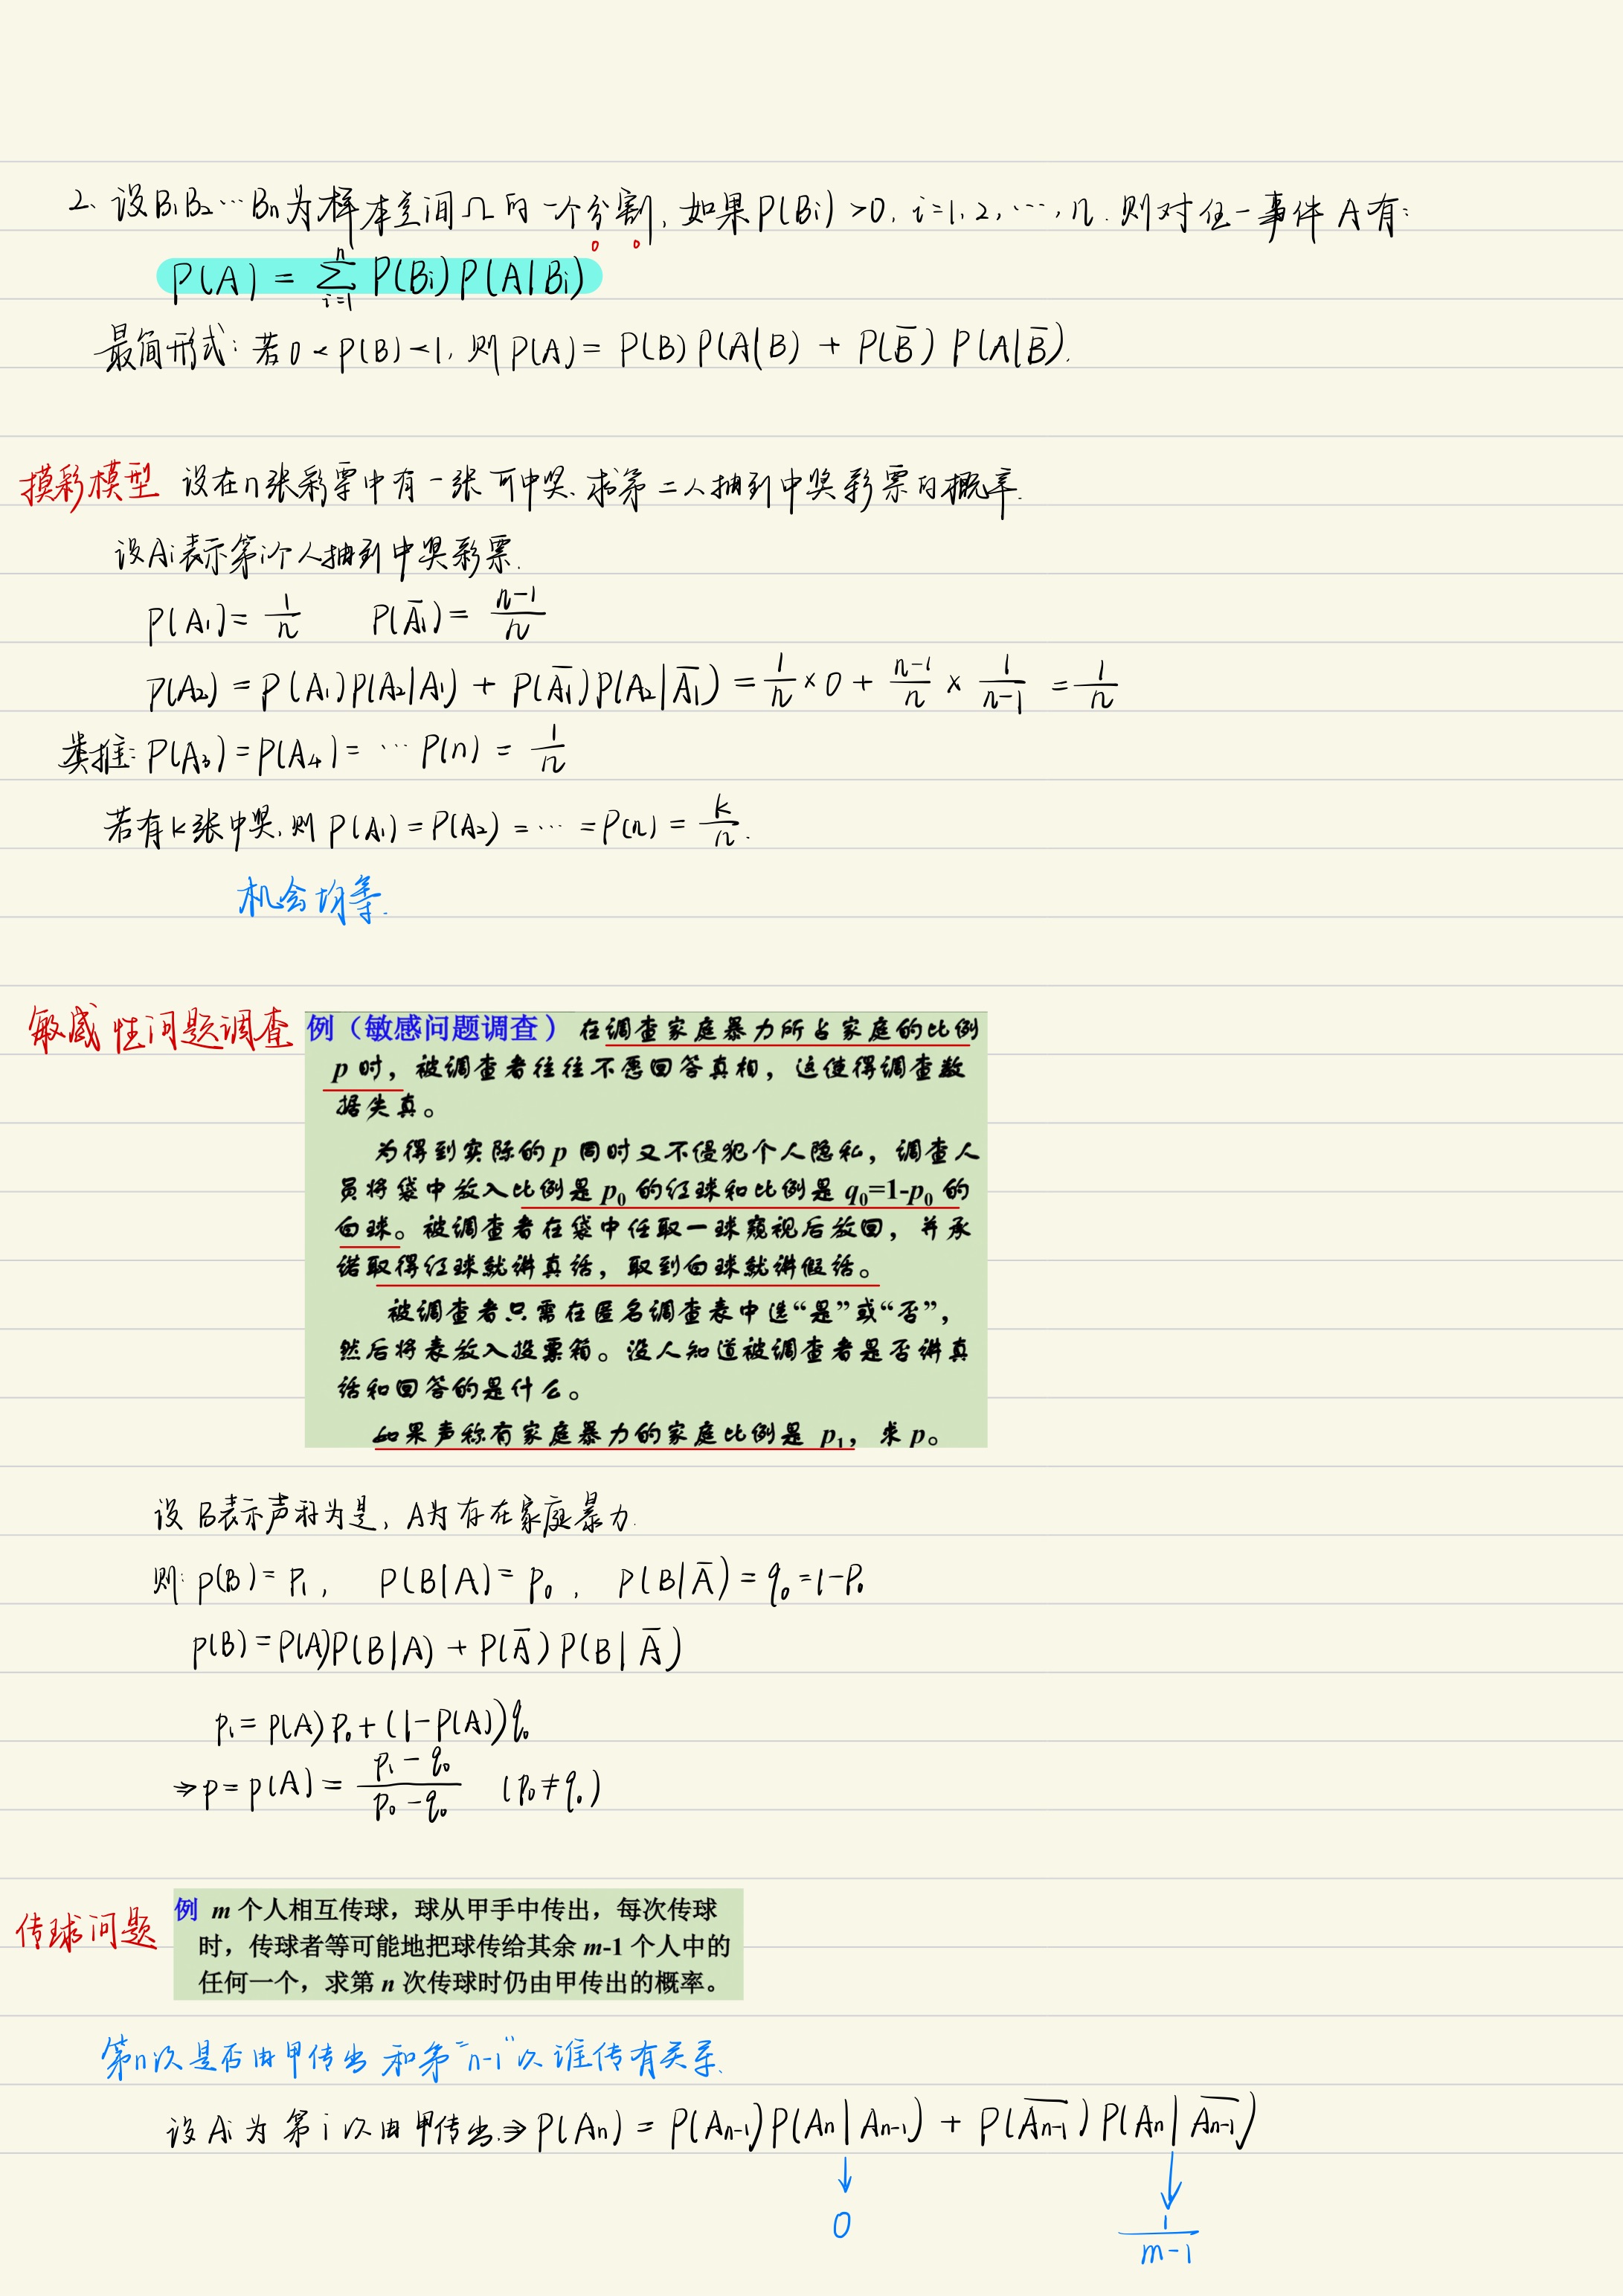 2. 设B₁B₂…Bn为样本空间Ω的一个分割, 如果P(Bi)>0, i=1,2,…,n. 则对任一事件A有:
P(A) = ∑_{i=1}^{n} P(Bi)P(A|Bi)
最简形式: 若0<P(B)<1, 则P(A)= P(B)P(A|B) + P(B̄) P(A|B̄).
摸彩模型 设在n张彩票中有一张可中奖. 求第二人抽到中奖彩票的概率.
设Ai表示第i个人抽到中奖彩票.
P(A₁)= 1/n P(Ā₁)= (n-1)/n
P(A₂) = P(A₁)P(A₂|A₁) + P(Ā₁)P(A₂|Ā₁) = 1/n × 0 + (n-1)/n × 1/(n-1) = 1/n
类推: P(A₃)=P(A₄)= … P(n) = 1/n
若有k张中奖, 则 P(A₁)=P(A₂)=…=P(n)= k/n.
机会均等.
敏感性问题调查
例（敏感问题调查）在调查家庭暴力所占家庭的比例
p 时，被调查者往往不愿回答真相，这使得调查数
据失真。
为得到实际的 p 同时又不侵犯个人隐私，调查人
员将袋中放入比例是 p₀ 的红球和比例是 q₀=1-p₀ 的
白球。被调查者在袋中任取一球窥视后放回，并承
诺取得红球就讲真话，取到白球就讲假话。
被调查者只需在匿名调查表中选“是”或“否”，
然后将表放入投票箱。没人知道被调查者是否讲真
话和回答的是什么。
如果声称有家庭暴力的家庭比例是 p₁，求 p。
设 B表示声称为是, A为存在家庭暴力.
则: P(B)= P₁, P(B|A)= P₀, P(B|Ā)= q₀=1-P₀
P(B)=P(A)P(B|A) + P(Ā)P(B|Ā)
P₁= P(A)P₀+(1-P(A))q₀
⇒p=P(A)= (P₁-q₀)/(P₀-q₀) (P₀≠q₀)
传球问题
例 m 个人相互传球，球从甲手中传出，每次传球
时，传球者等可能地把球传给其余 m-1 个人中的
任何一个，求第 n 次传球时仍由甲传出的概率。
第n次是否由甲传出 和第“n-1”次谁传有关系.
设Ai为第i次由甲传出.⇒P(An) = P(An-1)P(An|An-1) + P(A̅n̅-̅1̅)P(An|A̅n̅-̅1̅)
↓ ↓
0 1/(m-1)